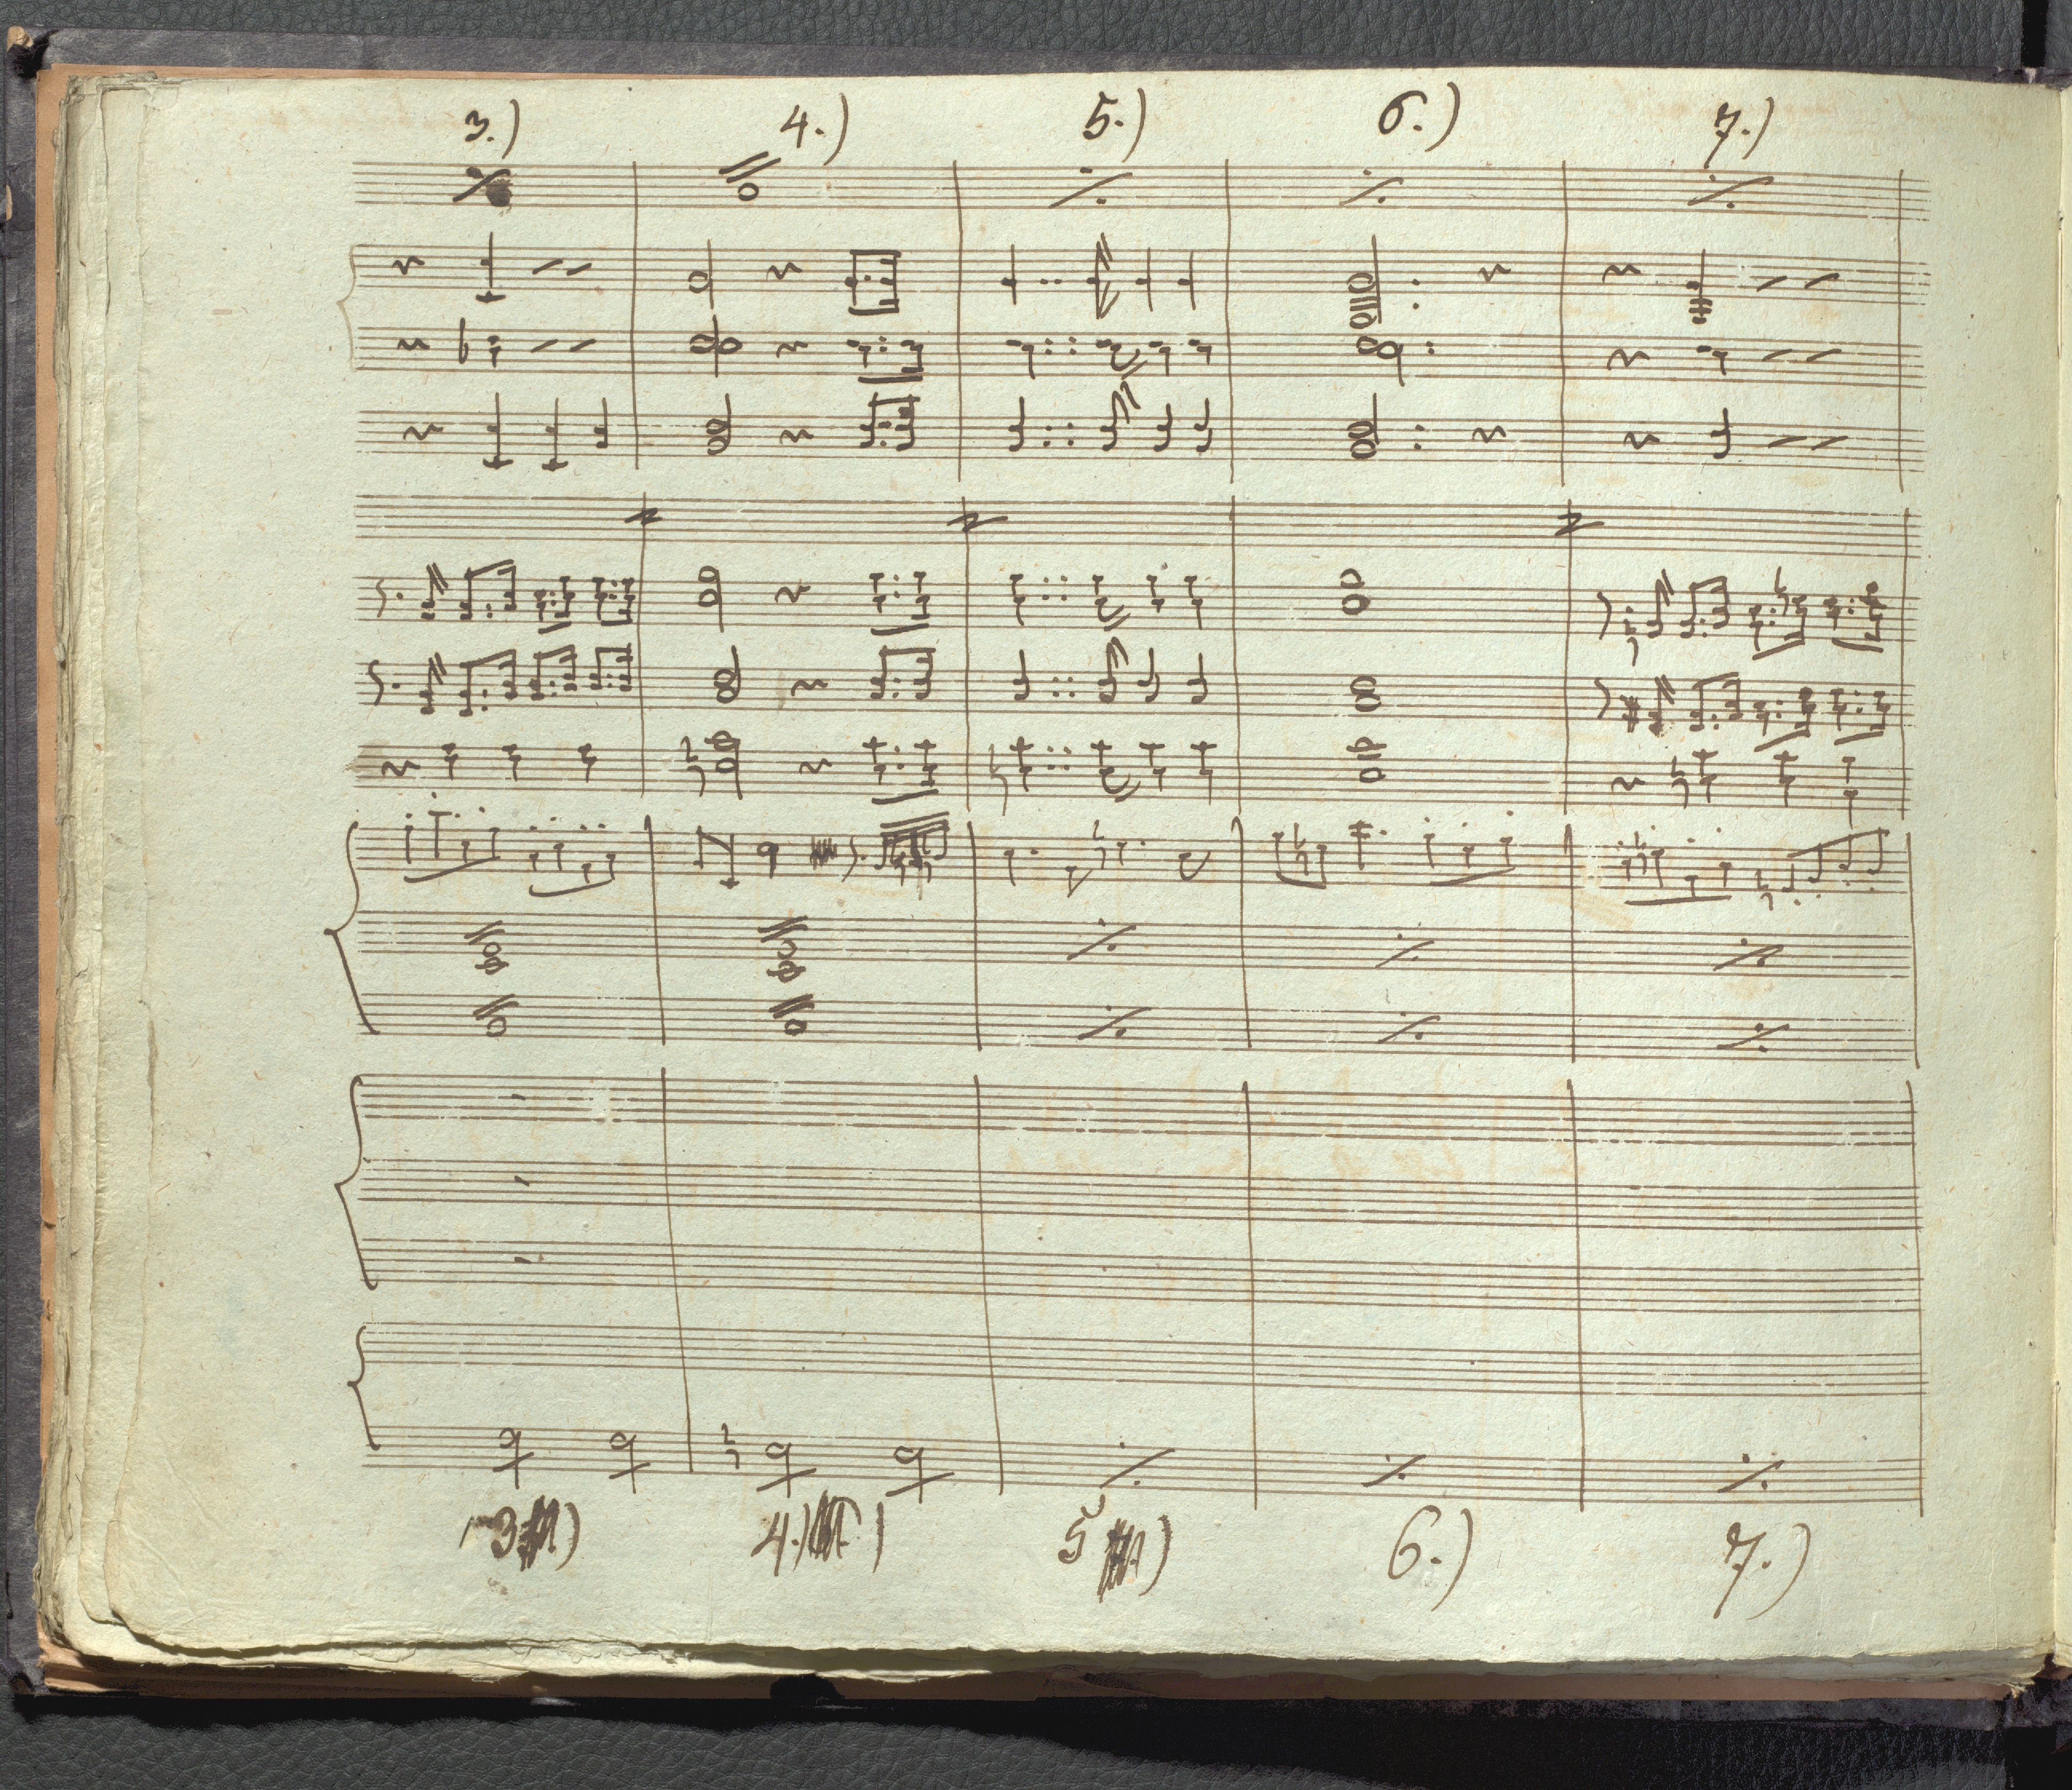 3.) 4.) 5.) 6.) 7.)
3 ) 4.) ) 5 ) 6.) 7.)